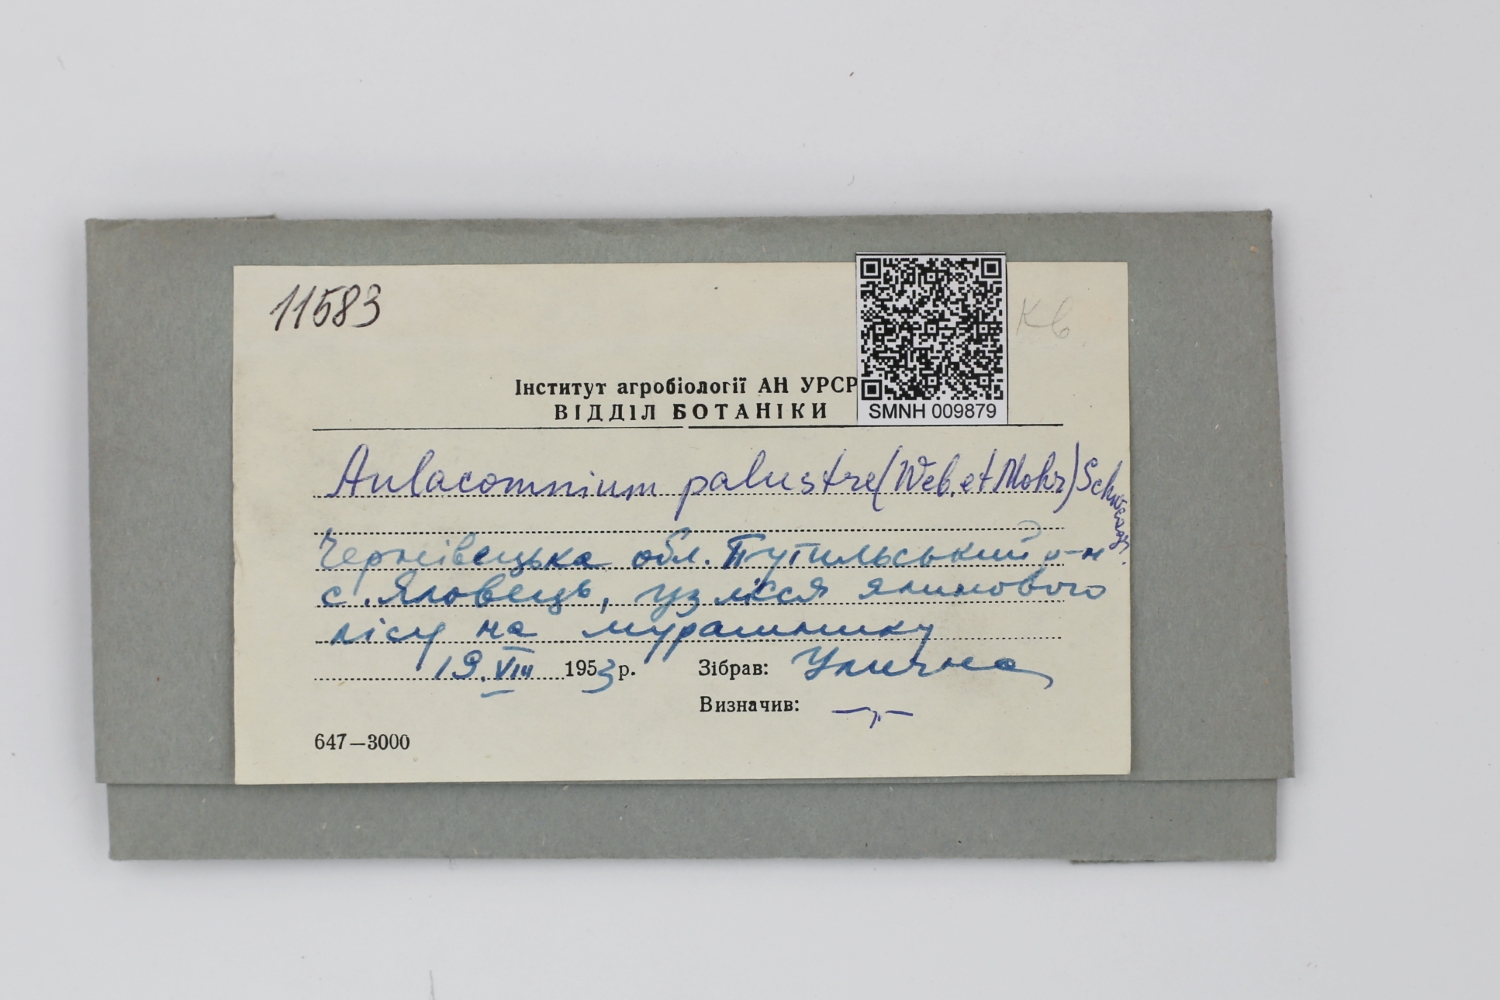 11583
Кв
Інститут агробіології АН УРСР
ВІДДІЛ БОТАНІКИ
SMNH 009879
Aulacomnium palustre (Web. et Mohr) Schwaegr.
Чернівецька обл. Путильський р-н
с. Яловець, узлісся ялинового
лісу на мурашнику
19.VIII 1953 р. Зібрав: Улична
Визначив: —„—
647—3000